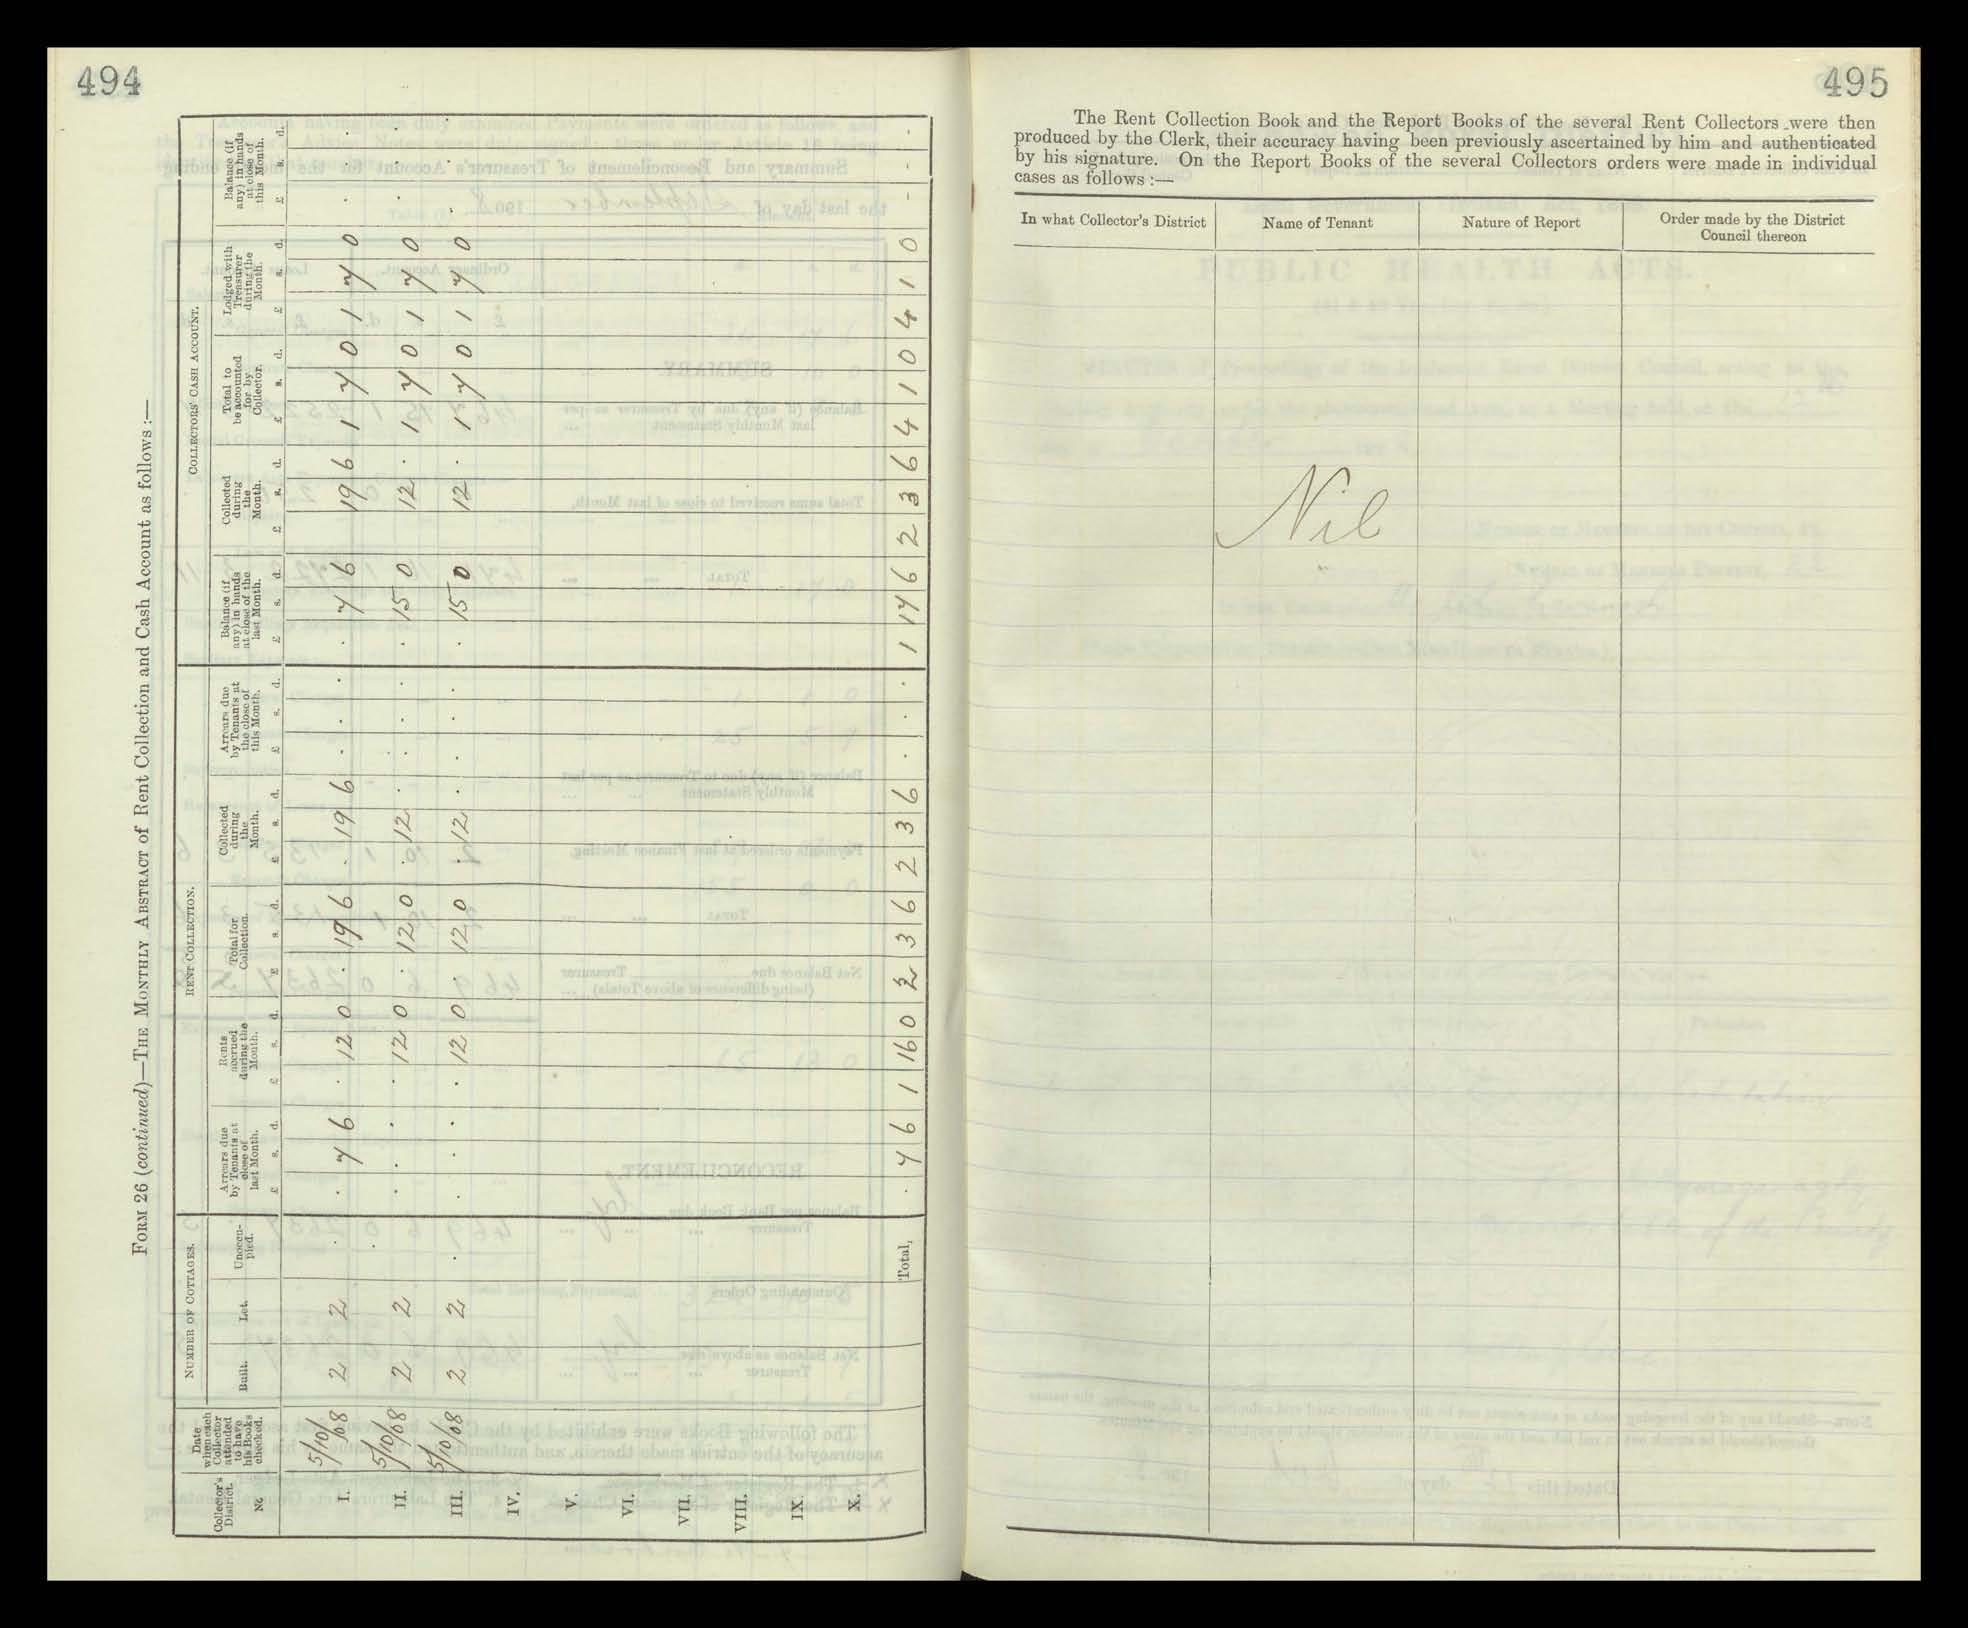 494
FORM 26 (continued)—THE MONTHLY ABSTRACT of Rent Collection and Cash Account as follows :—
Collector's District. No
Date when each Collector attended to have his Books checked.
NUMBER OF COTTAGES.
Built. Let. Unoccupied.
RENT COLLECTION.
Arrears due by Tenants at close of last Month. £ s. d.
Rents accrued during the Month. £ s. d.
Total for Collection. £ s. d.
Collected during the Month. £ s. d.
Arrears due by Tenants at the close of this Month. £ s. d.
COLLECTORS' CASH ACCOUNT.
Balance (if any) in hands at close of the last Month. £ s. d.
Collected during the Month. £ s. d.
Total to be accounted for by Collector. £ s. d.
Lodged with Treasurer during the Month. £ s. d.
Balance (if any) in hands at close of this Month. £ s. d.
I. 5/10/08 2 2 . . 7 6 . 12 0 . 19 6 . 19 6 . . . . 7 6 19 6 1 7 0 1 7 0 . . .
II. 5/10/08 2 2 . . . . . 12 0 . 12 0 . 12 . . . . . 15 0 12 . 1 7 0 1 7 0 . . .
III. 5/10/08 2 2 . . . . . 12 0 . 12 0 . 12 . . . . . 15 0 12 . 1 7 0 1 7 0 . . .
IV.
V.
VI.
VII.
VIII.
IX.
X.
Total, . 7 6 1 16 0 2 3 6 2 3 6 . . . 1 17 6 2 3 6 4 1 0 4 1 0 - - -
495
The Rent Collection Book and the Report Books of the several Rent Collectors were then
produced by the Clerk, their accuracy having been previously ascertained by him and authenticated
by his signature. On the Report Books of the several Collectors orders were made in individual
cases as follows :—
In what Collector's District
Name of Tenant
Nature of Report
Order made by the District
Council thereon
Nil